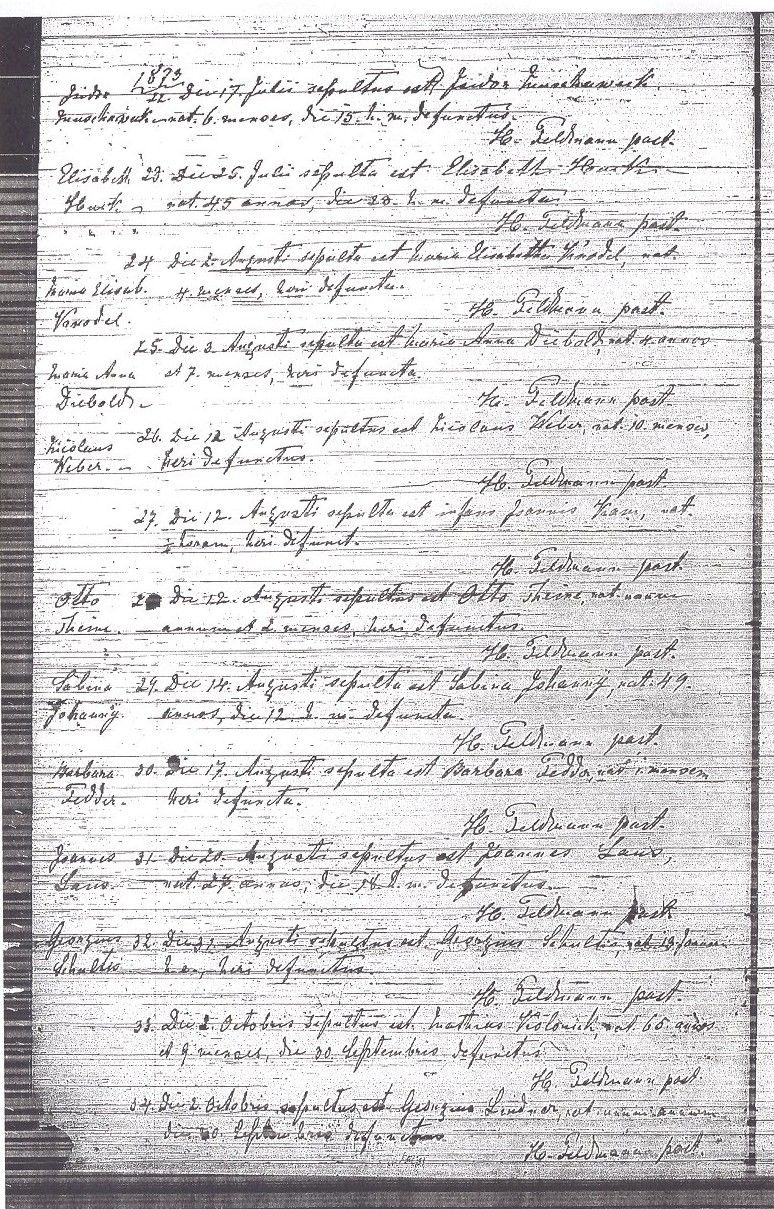 1873
Isidor 22. Die 17. Julii sepultus est Isidor Muschaweck
Muschaweck nat. 6. menses, die 15. h. m. defunctus.
H. Feldmann past.
Elisabeth 23. Die 25. Julii sepulta est Elisabeth Hurk
Hurk. nat. 45 annos, die 23. h. m. defuncta.
H. Feldmann past.
24 Die 2. Augusti sepulta est Maria Elisabetha Knodel, nat.
Maria Elisab. 4. menses, heri defuncta.
Knodel.
H. Feldmann past.
25. Die 3. Augusti sepulta est Maria Anna Diebold, nat. 4. annos
Maria Anna et 7. menses, heri defuncta.
Diebold
H. Feldmann past
Nicolaus 26. Die 12 Augusti sepultus est Nicolaus Weber, nat. 10. menses,
Weber. heri defunctus.
H. Feldmann past
27. Die 12. Augusti sepulta est infans Joannis, nat.
½ horam, heri defunct.
H. Feldmann past.
Otto 28 Die 12. Augusti sepultus est Otto Theine, nat. unum
Theine. annum et 2. menses, heri defunctus.
H. Feldmann past.
Sabina 29. Die 14. Augusti sepulta est Sabina Johanny, nat. 49.
Johanny annos, die 12 h. m. defuncta.
H. Feldmann past.
Barbara 30. Die 17. Augusti sepulta est Barbara Fedder, nat 1. mensem
Fedder. heri defuncta.
H. Feldmann past.
Joannes 31. Die 20. Augusti sepultus est Joannes Laus,
Laus nat. 27. annos, die 18 h. m. defunctus.
H. Feldmann past
Georgius 32. Die 31. Augusti sepultus est Georgius Schultis, nat. 13
Schultis heri defunctus.
H. Feldmann past.
33. Die 2. Octobris sepultus est. Mathias, nat. 65. annos
et 9 menses, die 30. Septembris defunctus
H. Feldmann past.
34. Die 2. Octobris sepultus est Georgius Lindner, nat unum annum
die 30. Septembris defunctus
H. Feldmann past.